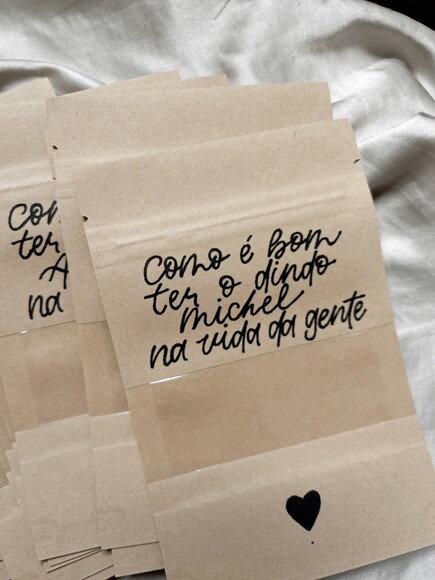 Como é bom
ter o dindo
Michel
na vida da gente
Com
ter
A
na